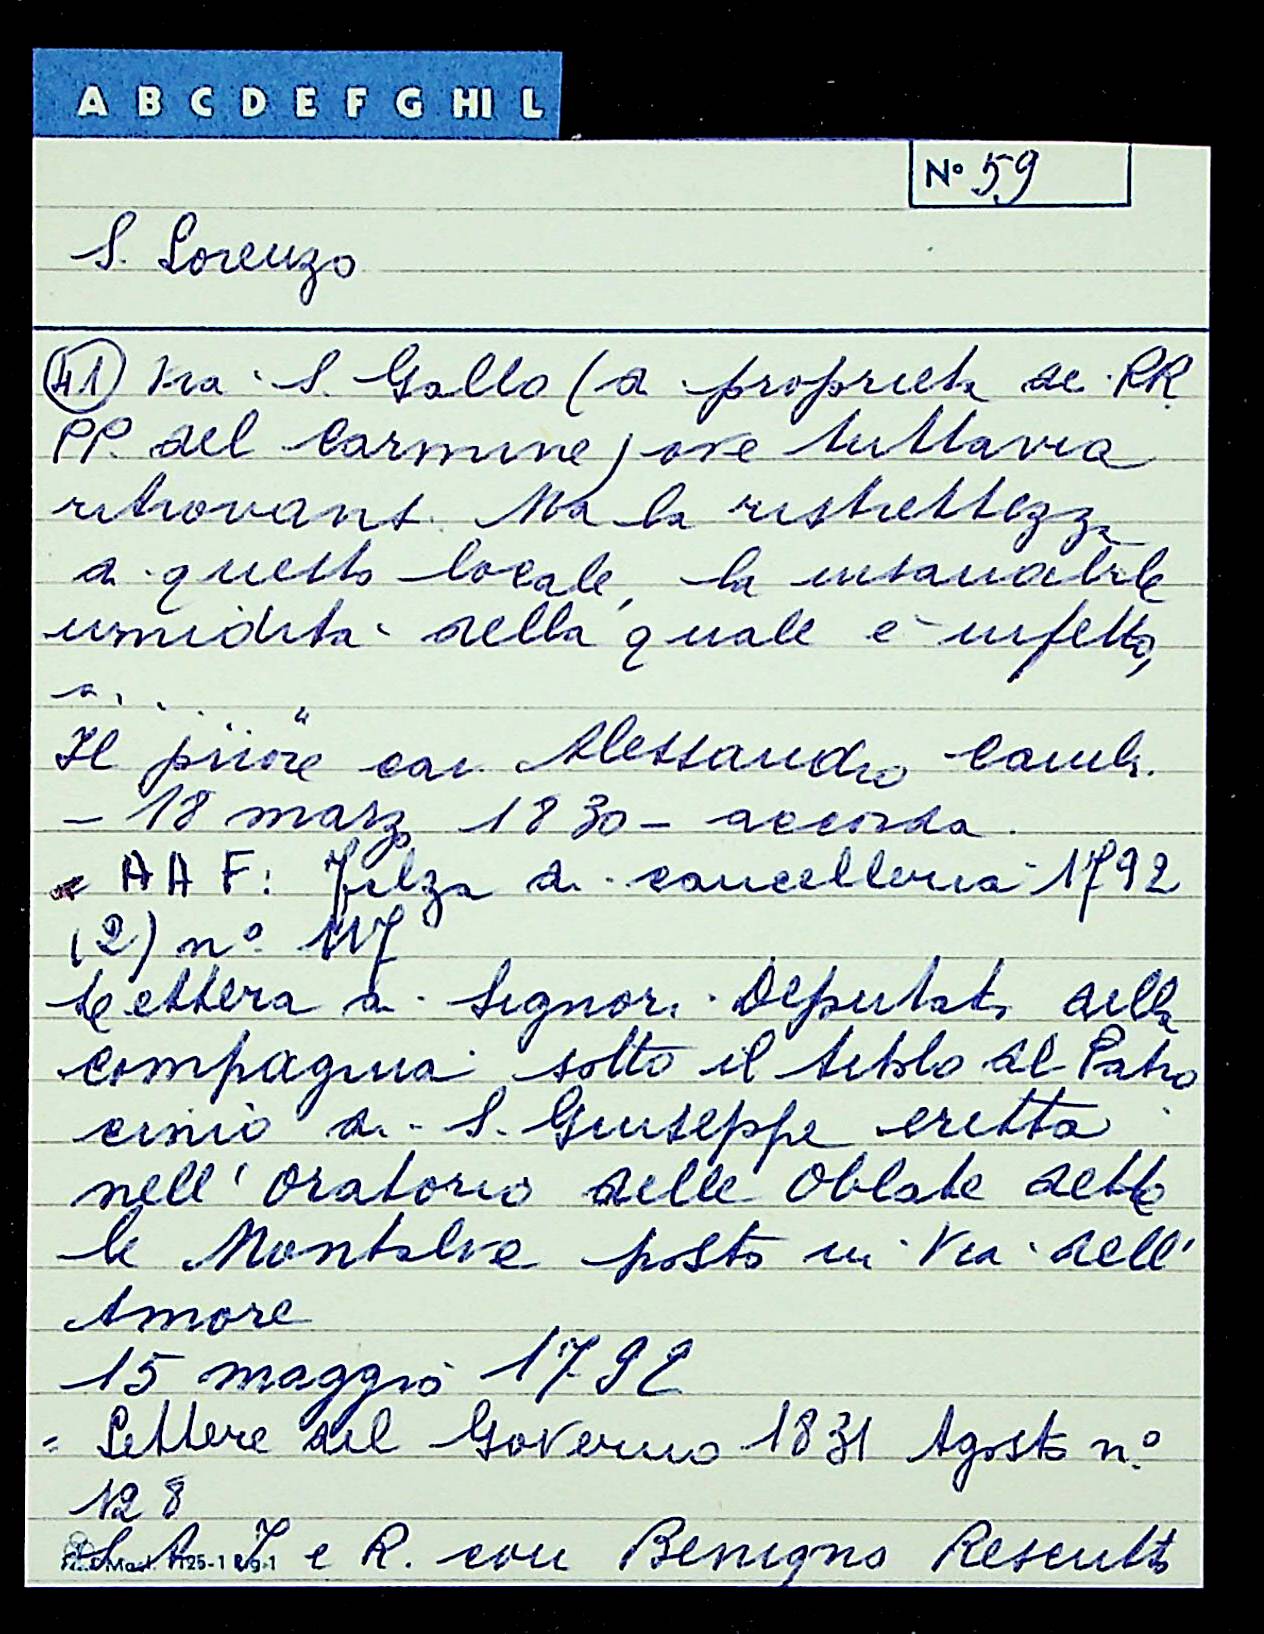 A B C D E F G HI L
N° 59
S. Lorenzo
41) Via S. Gallo (di proprietà dei RR.
PP. del Carmine) ove tuttavia
ritrovansi. Ma la ristrettezza
di questo locale, la insanabile
umidità della quale è infetto,
Il priore can. Alessandro
- 18 marzo 1830 - accorda.
= A A F: Filza di cancelleria 1792
(2) n° 117
Lettera ai Signori Deputati della
compagnia sotto il titolo del Patro
cinio di S. Giuseppe eretta
nell' oratorio delle Oblate dette
le Montalve posto in Via dell'
Amore
15 maggio 1792
= Lettere del Governo 1831 Agosto n°
128
S. A. I e R. con Benigno Rescritto